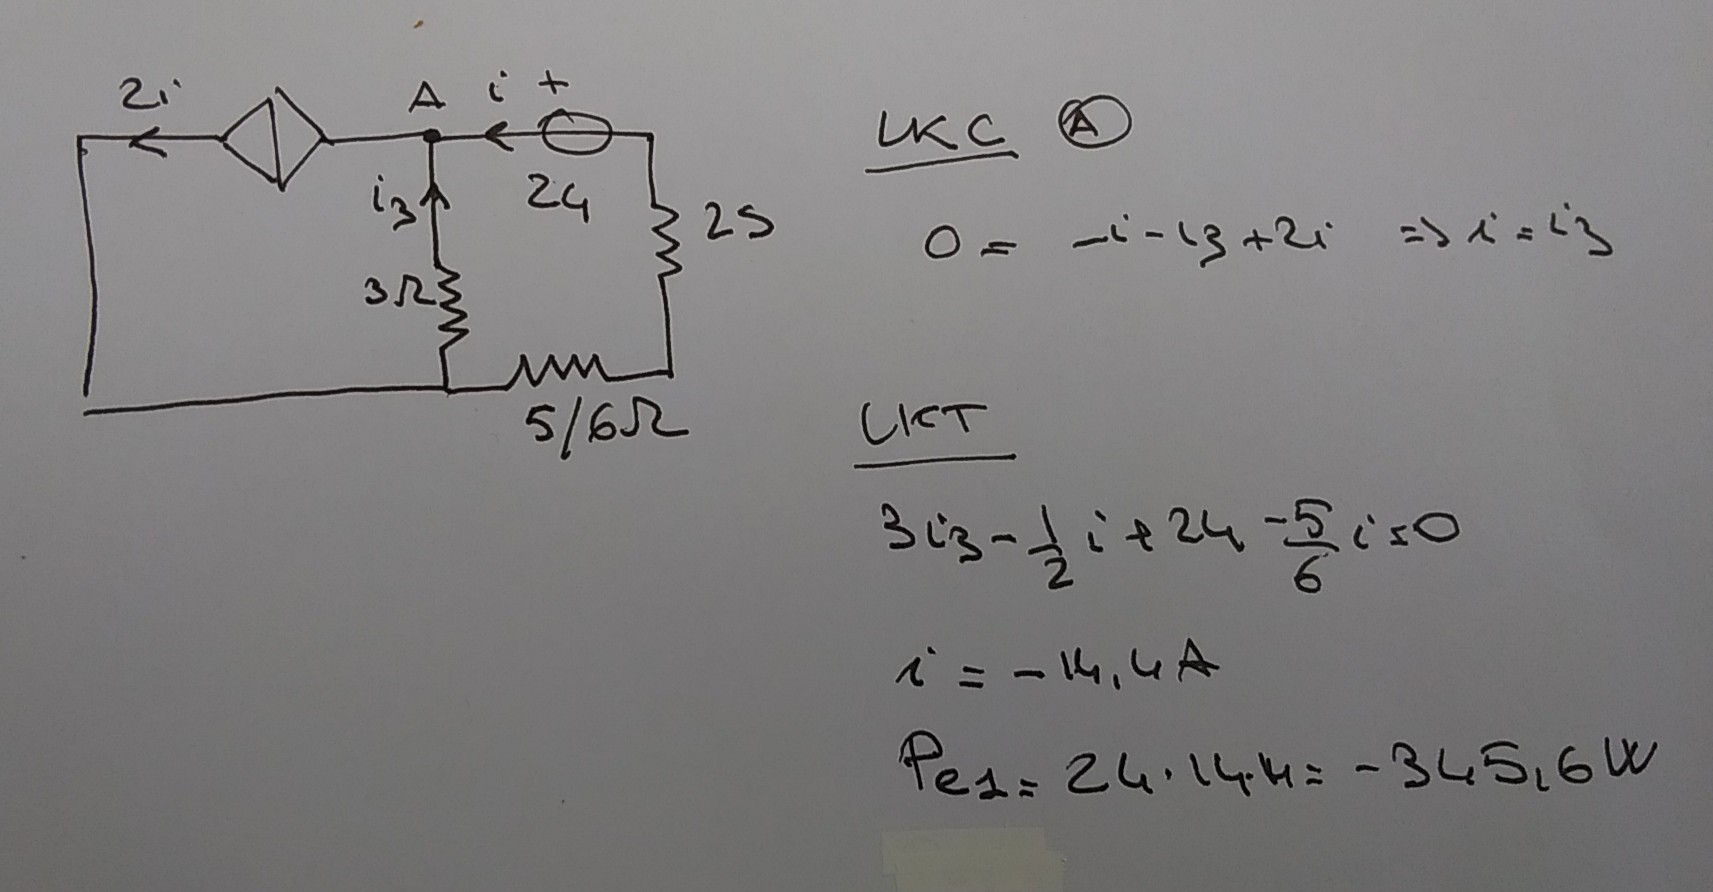 2i
A
i +
24
i3
3Ω
2S
5/6Ω
LKC A
0 = -i-i3+2i => i=i3
LKT
3i3-1/2i+24-5/6i=0
i=-14,4A
Pe1=24.14.4=-345,6W